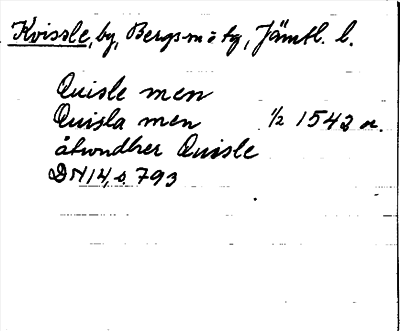 Kvissle, by, Bergs m: a tg, Jämtl. l.
Quisle men
Quisla men ½ 1542 or.
åtwndher Quisle
DN 14, s. 793